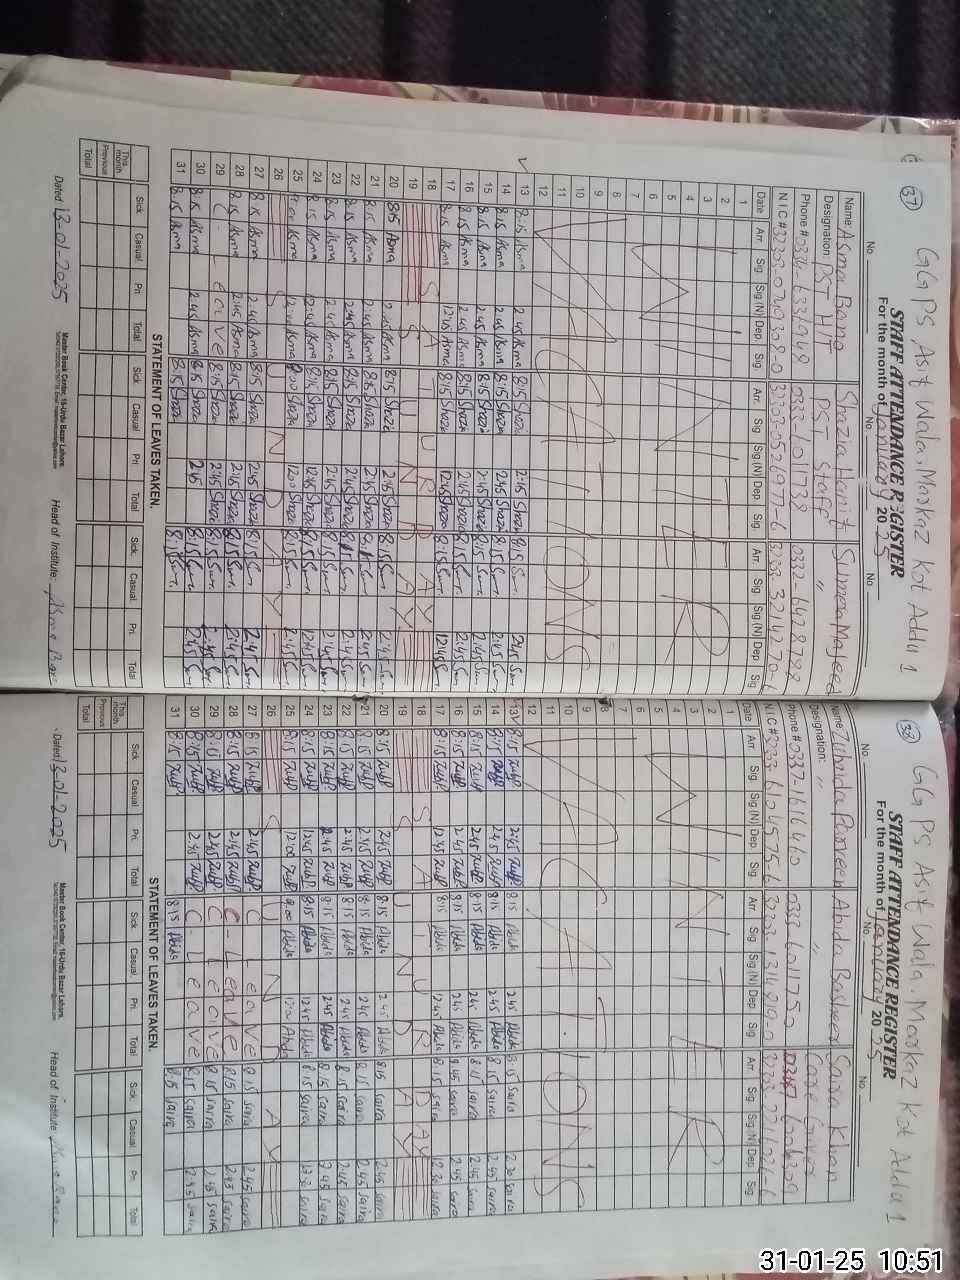 37
GGPS Asif Wala, Markaz Kot Addu 1
STAFF ATTENDANCE REGISTER
For the month of January 2025
No. No. No.
Name: Asma Bano Shazia Hanif Sumera Majeed
Designation: PST HT PST Staff "
Phone #
N I C #
Date Arr. Sig Sig (N) Dep Sig Arr Sig Sig (N) Dep Sig Arr. Sig Sig (N) Dep Sig
1
2
3
4
5
6
7
8
9
10
11
12
WINTER
VACATIONS
13 8:15 Asma 2:45 Asma 8:15 Shazia 2:45 Shazia 8:15 Sum. 2:45 Sum.
14 8:15 Asma 2:45 Asma 8:15 Shazia 2:45 Shazia 8:15 Sum. 2:45 Sum.
15 8:15 Asma 2:45 Asma 8:15 Shazia 2:45 Shazia 8:15 Sum. 2:45 Sum.
16 8:15 Asma 2:45 Asma 8:15 Shazia 2:45 Shazia 8:15 Sum. 2:45 Sum.
17 8:15 Asma 12:45 Asma 8:15 Shazia 12:45 Shazia 8:15 Sum. 12:45 Sum.
18 SATURDAY
19 SUNDAY
20 8:15 Asma 2:45 Asma 8:15 Shazia 2:45 Shazia 8:15 Sum. 2:45 Sum.
21 8:15 Asma 2:45 Asma 8:15 Shazia 2:45 Shazia 8:15 Sum. 2:45 Sum.
22 8:15 Asma 2:45 Asma 8:15 Shazia 2:45 Shazia 8:15 Sum. 2:45 Sum.
23 8:15 Asma 2:45 Asma 8:15 Shazia 2:45 Shazia 8:15 Sum. 2:45 Sum.
24 8:15 Asma 12:45 Asma 8:15 Shazia 12:45 Shazia 8:15 Sum. 12:45 Sum.
25 Asma 12:00 Asma 9:00 Shazia 12:00 Shazia 8:15 Sum. 2:45 Sum.
26 SUNDAY
27 8:15 Asma 2:45 Asma 8:15 Shazia 2:45 Shazia 8:15 Sum. 2:45 Sum.
28 8:15 Asma 2:45 Asma 8:15 Shazia 2:45 Shazia 8:15 Sum. 2:45 Sum.
29 C - Leave 8:15 Shazia 2:45 Shazia 8:15 Sum. 2:45 Sum.
30 8:15 Asma 2:45 Asma 8:15 Shazia 2:45 8:15 Sum. 2:45 Sum.
31 8:15 Asma 8:15 Shazia 8:15 Sum.
STATEMENT OF LEAVES TAKEN.
Sick Casual Pri Total Sick Casual Pri Total Sick Casual. Pri. Total
This month
Previous
Total
Dated 13-01-2025 Master Book Center, 16-Urdu Bazar Lahore. Head of Institute: Asma Bano
38
GGPS Asif Wala, Markaz Kot Addu 1
STAFF ATTENDANCE REGISTER
For the month of January 2025
No. No.
Name: Zubaida Parveen Abida Basheer Saira Khan
Designation: " " Care Giver
Phone #
N.I.C #
Date Arr. Sig Sig (N) Dep Sig Arr. Sig Sig (N) Dep Sig Arr Sig Sig N) Dep Sig
1
2
3
4
5
6
7
8
9
10
11
12
WINTER
VACATIONS
13 8:15 ZubP. 2:45 ZubP. 8:15 Abida 2:45 Abida 8:15 Saira 2:30 Saira
14 8:15 ZubP. 2:45 ZubP. 8:15 Abida 2:45 Abida 8:15 Saira 2:45 Saira
15 8:15 ZubP. 2:45 ZubP. 8:15 Abida 2:45 Abida 8:15 Saira 2:45 Saira
16 8:15 ZubP. 2:45 ZubP. 8:15 Abida 2:45 Abida 8:45 Saira 2:45 Saira
17 8:15 ZubP. 12:45 ZubP. 8:15 Abida 12:45 Abida 8:15 Saira 12:30 Saira
18 SATURDAY
19 SUNDAY
20 8:15 ZubP. 2:45 ZubP. 8:15 Abida 2:45 Abida 8:15 Saira 2:45 Saira
21 8:15 ZubP. 2:45 ZubP. 8:15 Abida 2:45 Abida 8:15 Saira 2:45 Saira
22 8:15 ZubP. 2:45 ZubP. 8:15 Abida 2:45 Abida 8:15 Saira 2:45 Saira
23 8:15 ZubP. 2:45 ZubP. 8:15 Abida 2:45 Abida 8:15 Saira 2:45 Saira
24 8:15 ZubP. 12:45 ZubP. 8:15 Abida 12:45 Abida 8:15 Saira 12:30 Saira
25 8:15 ZubP. 12:00 ZubP. 9:00 Abida 12:00 Abida
26 SUNDAY
27 8:15 ZubP. 2:45 ZubP. C - Leave 8:15 Saira 2:45 Saira
28 8:15 ZubP. 2:45 ZubP. C - Leave 8:15 Saira 2:45 Saira
29 8:15 ZubP. 2:45 ZubP. C - Leave 8:15 Saira 2:45 Saira
30 8:15 ZubP. 2:45 ZubP. C - Leave 8:15 Saira 2:45 Saira
31 8:15 ZubP. 8:15 Abida 8:15 Saira
STATEMENT OF LEAVES TAKEN.
Sick Casual Pri. Total Sick Casual Pri Total Sick Casual Pri Total
This month
Previous
Total
Dated 13-01-2025 Master Book Center, 16-Urdu Bazar Lahore. Head of Institute
31-01-25 10:51